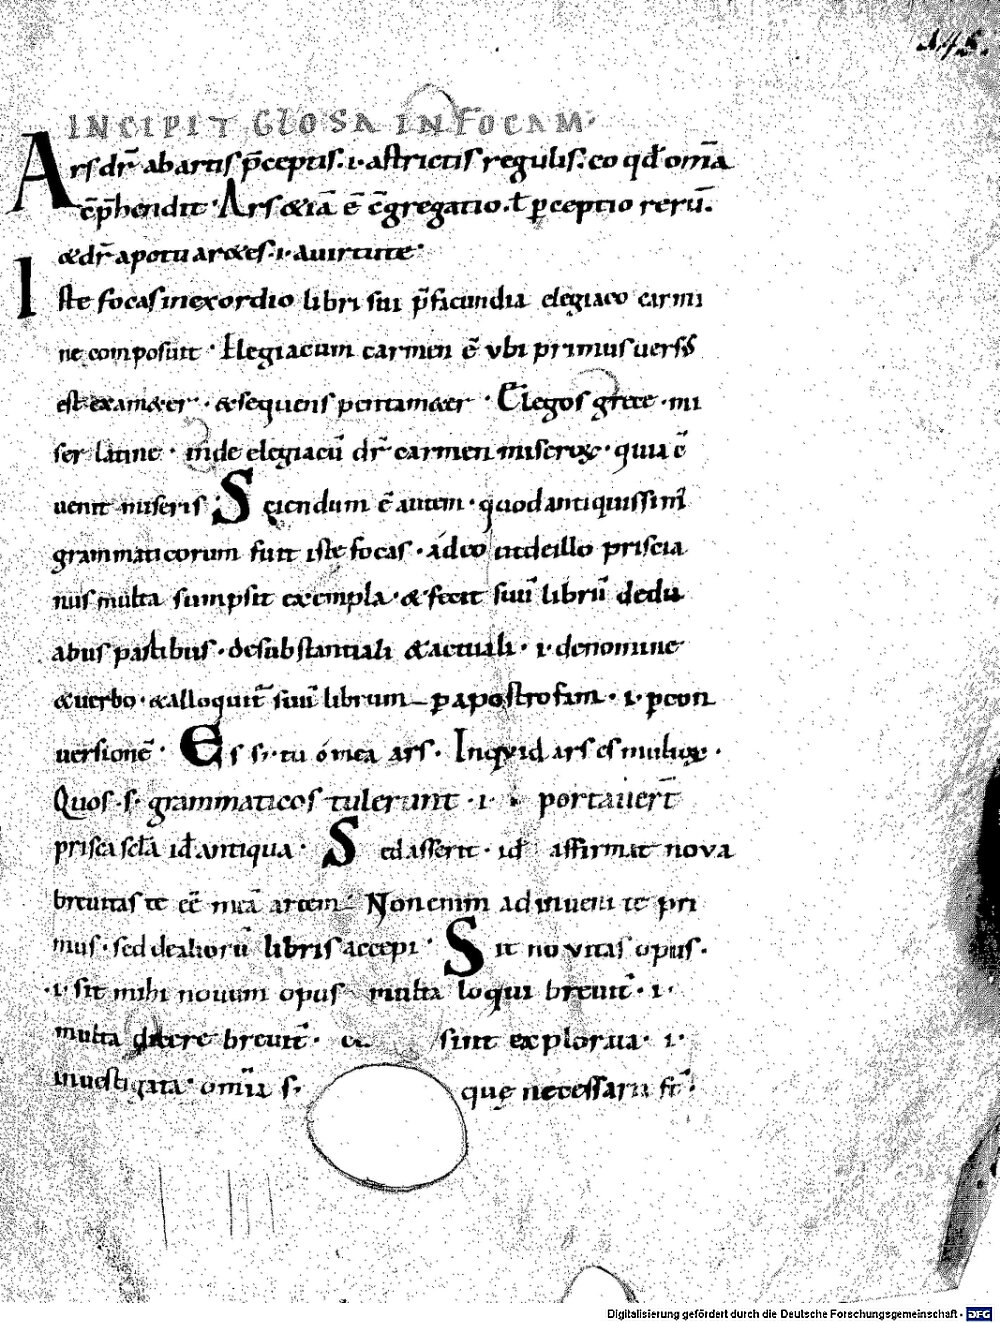 145.
INCIPIT GLOSA IN FOCAM·
Ars dr̄ ab artis p̄ceptis .i. astrictis regulis. eo qđ om̄a
cp̄hendit· Ars &iā ē c̄gregatio. ł ꝑceptio rerū.
& dr̄ apotu ar&es .i. auirtute·
Iste focas inexordio libri sui p̄facundia elegiaco carmi
ne composuit· Elegiacum carmen ē vbi primus verss̄
est exam&er· & sequens pentam&er· Elegos grece· mi
ser latine· inde elegiacū dr̄ carmen miseroꝝ· quia c̄
uenit miseris· Sciendum ē autem· quod antiquissimī
grammaticorum fuit iste focas· ádeo utdeillo priscia
nus multa sumpsit exempla· & fecit suū librū dedu
abus partibus· desubstantiali & actuali· .i. denomine
& uerbo· & alloquit̄ suū librum ꝑ apostrofam· .i. ꝑ con
uersionē· Es s. tu ó mea ars· Inquid ars es multoꝝ·
Quos .s. grammaticos tulerunt .i. portauer̄t
prisca sc̄la id antiqua· Sed asserit· id affirmat nova
breuitas te eē meā artem Non enim adinueni te pri
mus· sed dealiorū libris accepi· Sit novitas opus·
.i. sit mihi nouum opus multa loqui breuit̄· .i.
multa dicere breuit̄· sint explorata· .i.
inuestigata· omīa s. quę necessaria st̄·
Digitalisierung gefördert durch die Deutsche Forschungsgemeinschaft - DFG